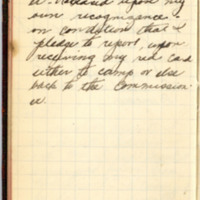 own recognizance -
on condition that I
pledge to report, upon
receiving my red card
either to camp or else
back to the Commission